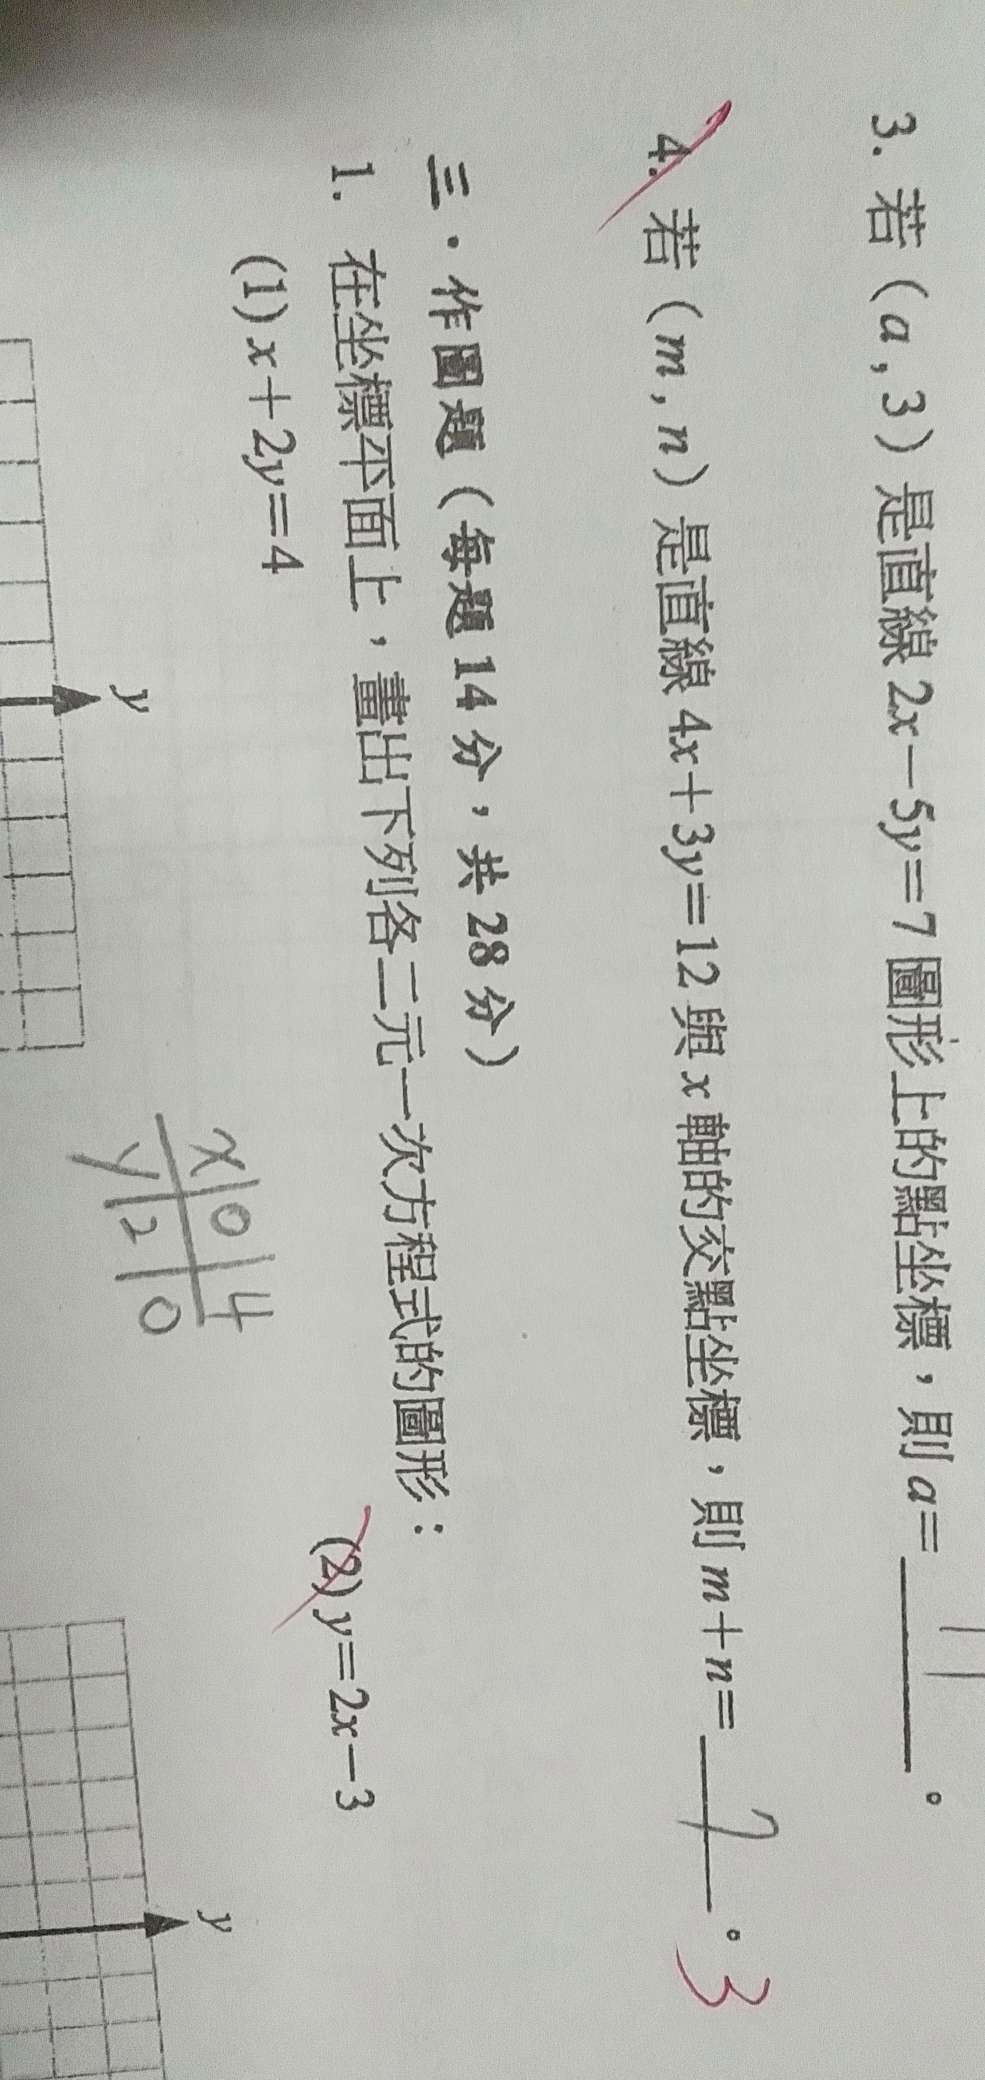 3. 若（a , 3）是直線 2x－5y＝7 圖形上的點坐標，則 a＝ 11 。
4. 若（m , n）是直線 4x＋3y＝12 與 x 軸的交點坐標，則 m＋n＝ 7 。 3
三．作圖題（每題 14 分，共 28 分）
1. 在坐標平面上，畫出下列各二元一次方程式的圖形：
(1) x＋2y＝4
(2) y＝2x－3
x | 0 | 4
y | 2 | 0
y
y